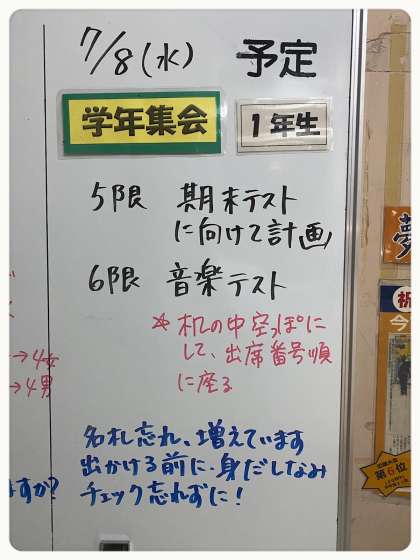 7/8(水) 予定
学年集会 1年生
5限 期末テスト
に向けて計画
6限 音楽テスト
☆机の中空っぽに
して、出席番号順
に座る
名札忘れ、増えています
出かける前に、身だしなみ
チェック忘れずに!
→4女
→4男
ますか?
夢
祝
今
第6位